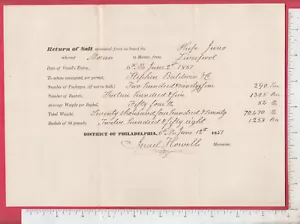 Return of Salt Ship Juno
whereof Moran is Master, from Liverpool
Date of Vessel's Entry, June 2d 1857
To whom consigned per permit, Stephen Baldwin & Co
Number of Packages, (if not in bulk) Two hundred &
Number of Thirteen hundred & five 1305
Average Weight per Bushel, Fifty four lb
Total Weight Seventy thousand four hundred & seventy 70470 lbs
Bushels of 56 pounds Twelve hundred & fifty eight 1258
DISTRICT OF PHILADELPHIA, June 12th 1857
Israel Howell Measurer.